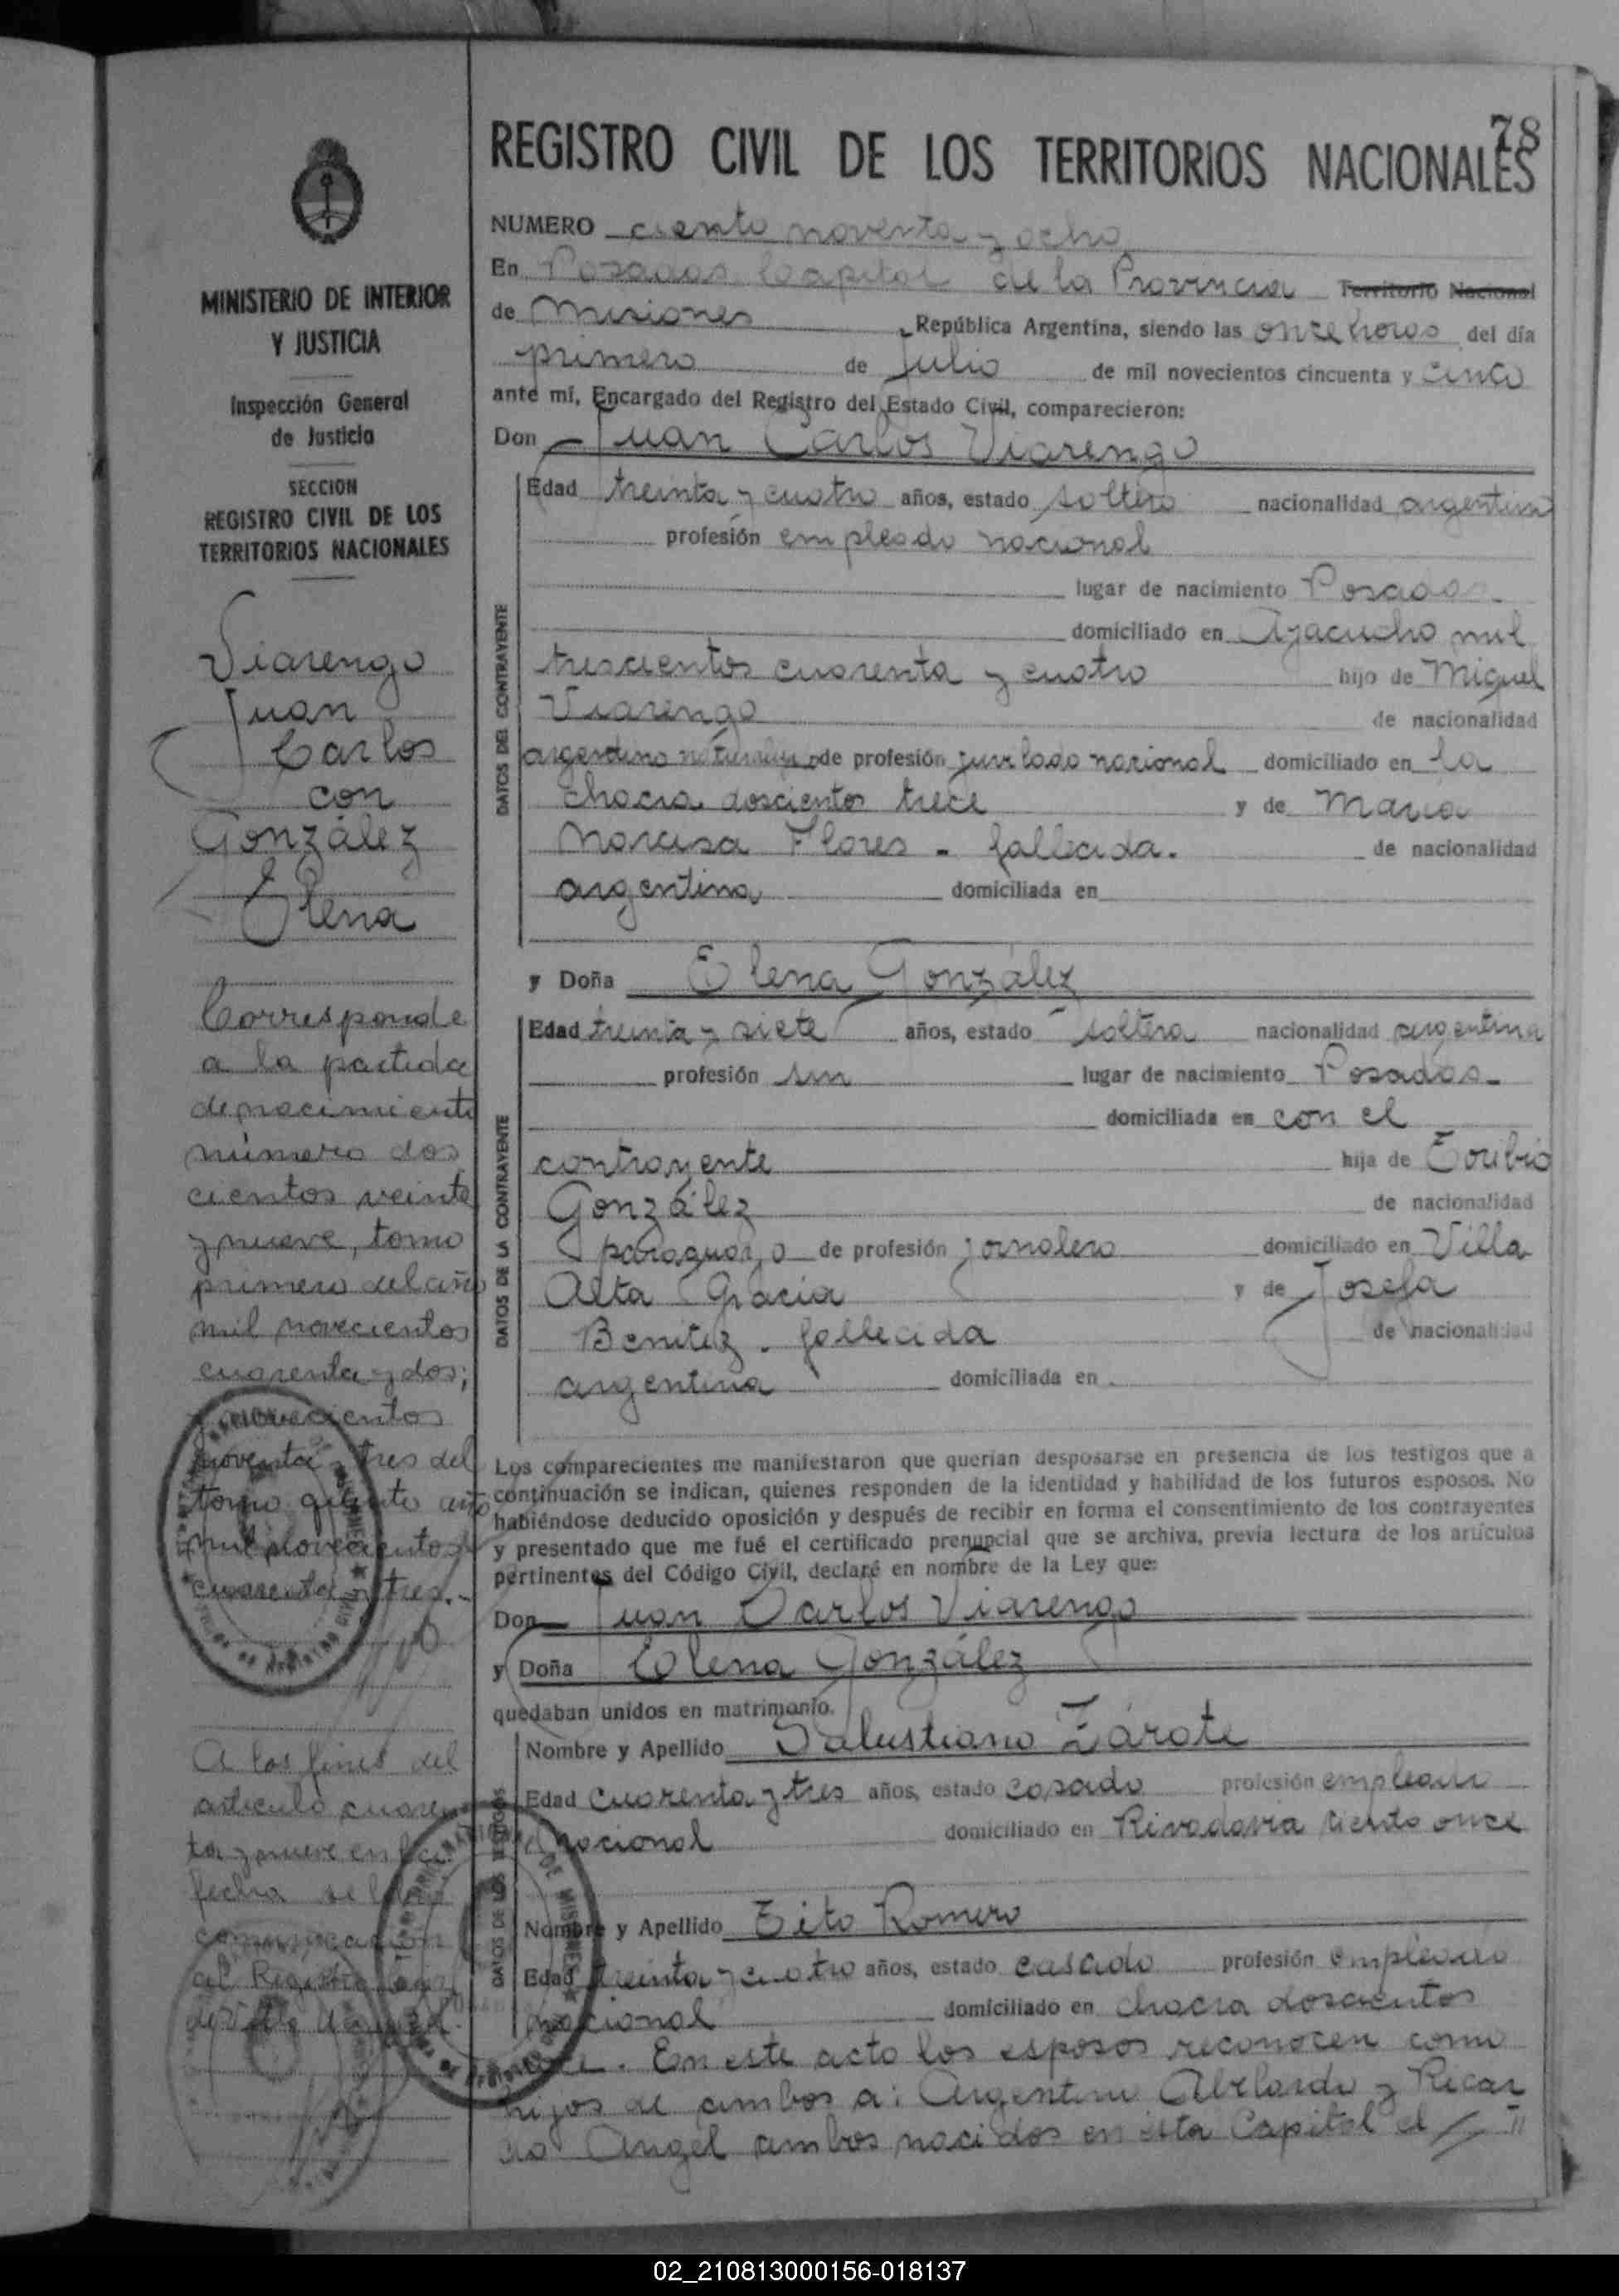 78
REGISTRO CIVIL DE LOS TERRITORIOS NACIONALES
MINISTERIO DE INTERIOR
Y JUSTICIA
Inspección General
de Justicia
SECCION
REGISTRO CIVIL DE LOS
TERRITORIOS NACIONALES
Viarengo
Juan
Carlos
con
González
Elena
Corresponde
a la partida
de nacimiento
número dos
cientos veinte
y nueve, tomo
primero del año
mil novecientos
cuarenta y dos;
y novecientos
noventa y tres del
tomo quinto año
mil novecientos
cuarenta y tres.-
A los fines del
artículo cuaren
ta y nueve en la
fecha se
comunicación
al Registro
de
NUMERO ciento noventa y ocho
En Posadas Capital de la Provincia Territorio Nacional
de Misiones República Argentina, siendo las once horas del día
primero de Julio de mil novecientos cincuenta y cinco
ante mí, Encargado del Registro del Estado Civil, comparecieron:
Don Juan Carlos Viarengo
DATOS DEL CONTRAYENTE
Edad treinta y cuatro años, estado soltero nacionalidad argentino
profesión empleado nacional
lugar de nacimiento Posadas
domiciliado en Ayacucho mil
trescientos cuarenta y cuatro hijo de Miguel
Viarengo de nacionalidad
argentino de profesión jubilado nacional domiciliado en la
chacra doscientos trece y de María
Narcisa Flores - fallecida. de nacionalidad
argentina domiciliada en
y Doña Elena González
DATOS DE LA CONTRAYENTE
Edad treinta y siete años, estado soltera nacionalidad argentina
profesión sin lugar de nacimiento Posadas
domiciliada en con el
contrayente hija de Toribio
González de nacionalidad
paraguayo de profesión jornalero domiciliado en Villa
Alta Gracia y de Josefa
Benitez - fallecida de nacionalidad
argentina domiciliada en
Los comparecientes me manifestaron que querían desposarse en presencia de los testigos que a
continuación se indican, quienes responden de la identidad y habilidad de los futuros esposos. No
habiéndose deducido oposición y después de recibir en forma el consentimiento de los contrayentes
y presentado que me fué el certificado prenupcial que se archiva, previa lectura de los artículos
pertinentes del Código Civil, declaré en nombre de la Ley que:
Don Juan Carlos Viarengo
y Doña Elena González
quedaban unidos en matrimonio.
DATOS DE LOS TESTIGOS
Nombre y Apellido Salustiano Zárate
Edad cuarenta y tres años, estado casado profesión empleado
nacional domiciliado en Rivadavia ciento once
Nombre y Apellido Tito Romero
Edad treinta y cuatro años, estado casado profesión empleado
nacional domiciliado en chacra doscientos
. En este acto los esposos reconocen como
hijos de ambos a: Argentino Abelardo y Ricar
do Angel ambos nacidos en esta Capital el
02_210813000156-018137